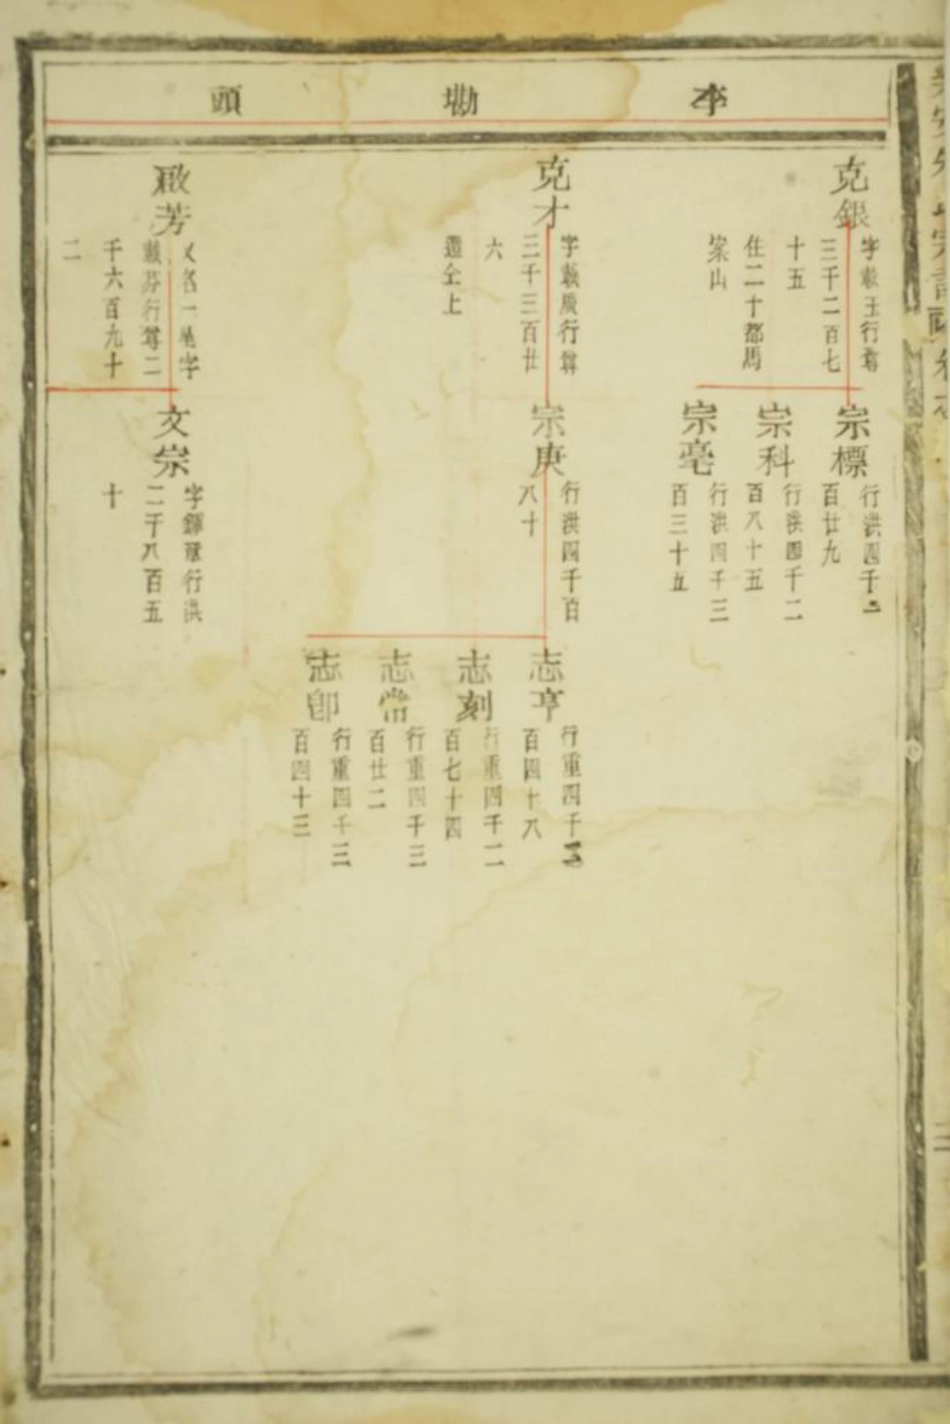 李 塢 頭
克銀
字載玉行尊
三千二百七
十五
住二十都馬
梁山
克才
字載庚行尊
三千三百廿
六
遷仝上
啟芳
又名一星字
載芬行尊二
千六百九十
二
宗標
行洪四千二
百廿九
宗科
行洪四千二
百八十五
宗亳
行洪四千三
百三十五
宗庚
行洪四千百
八十
文宗
字鐸 行洪
二千八百五
十
志亨
行重四千
百四十八
志刻
行重四千二
百七十四
志常
行重四千三
百廿二
志郎
行重四千三
百四十三